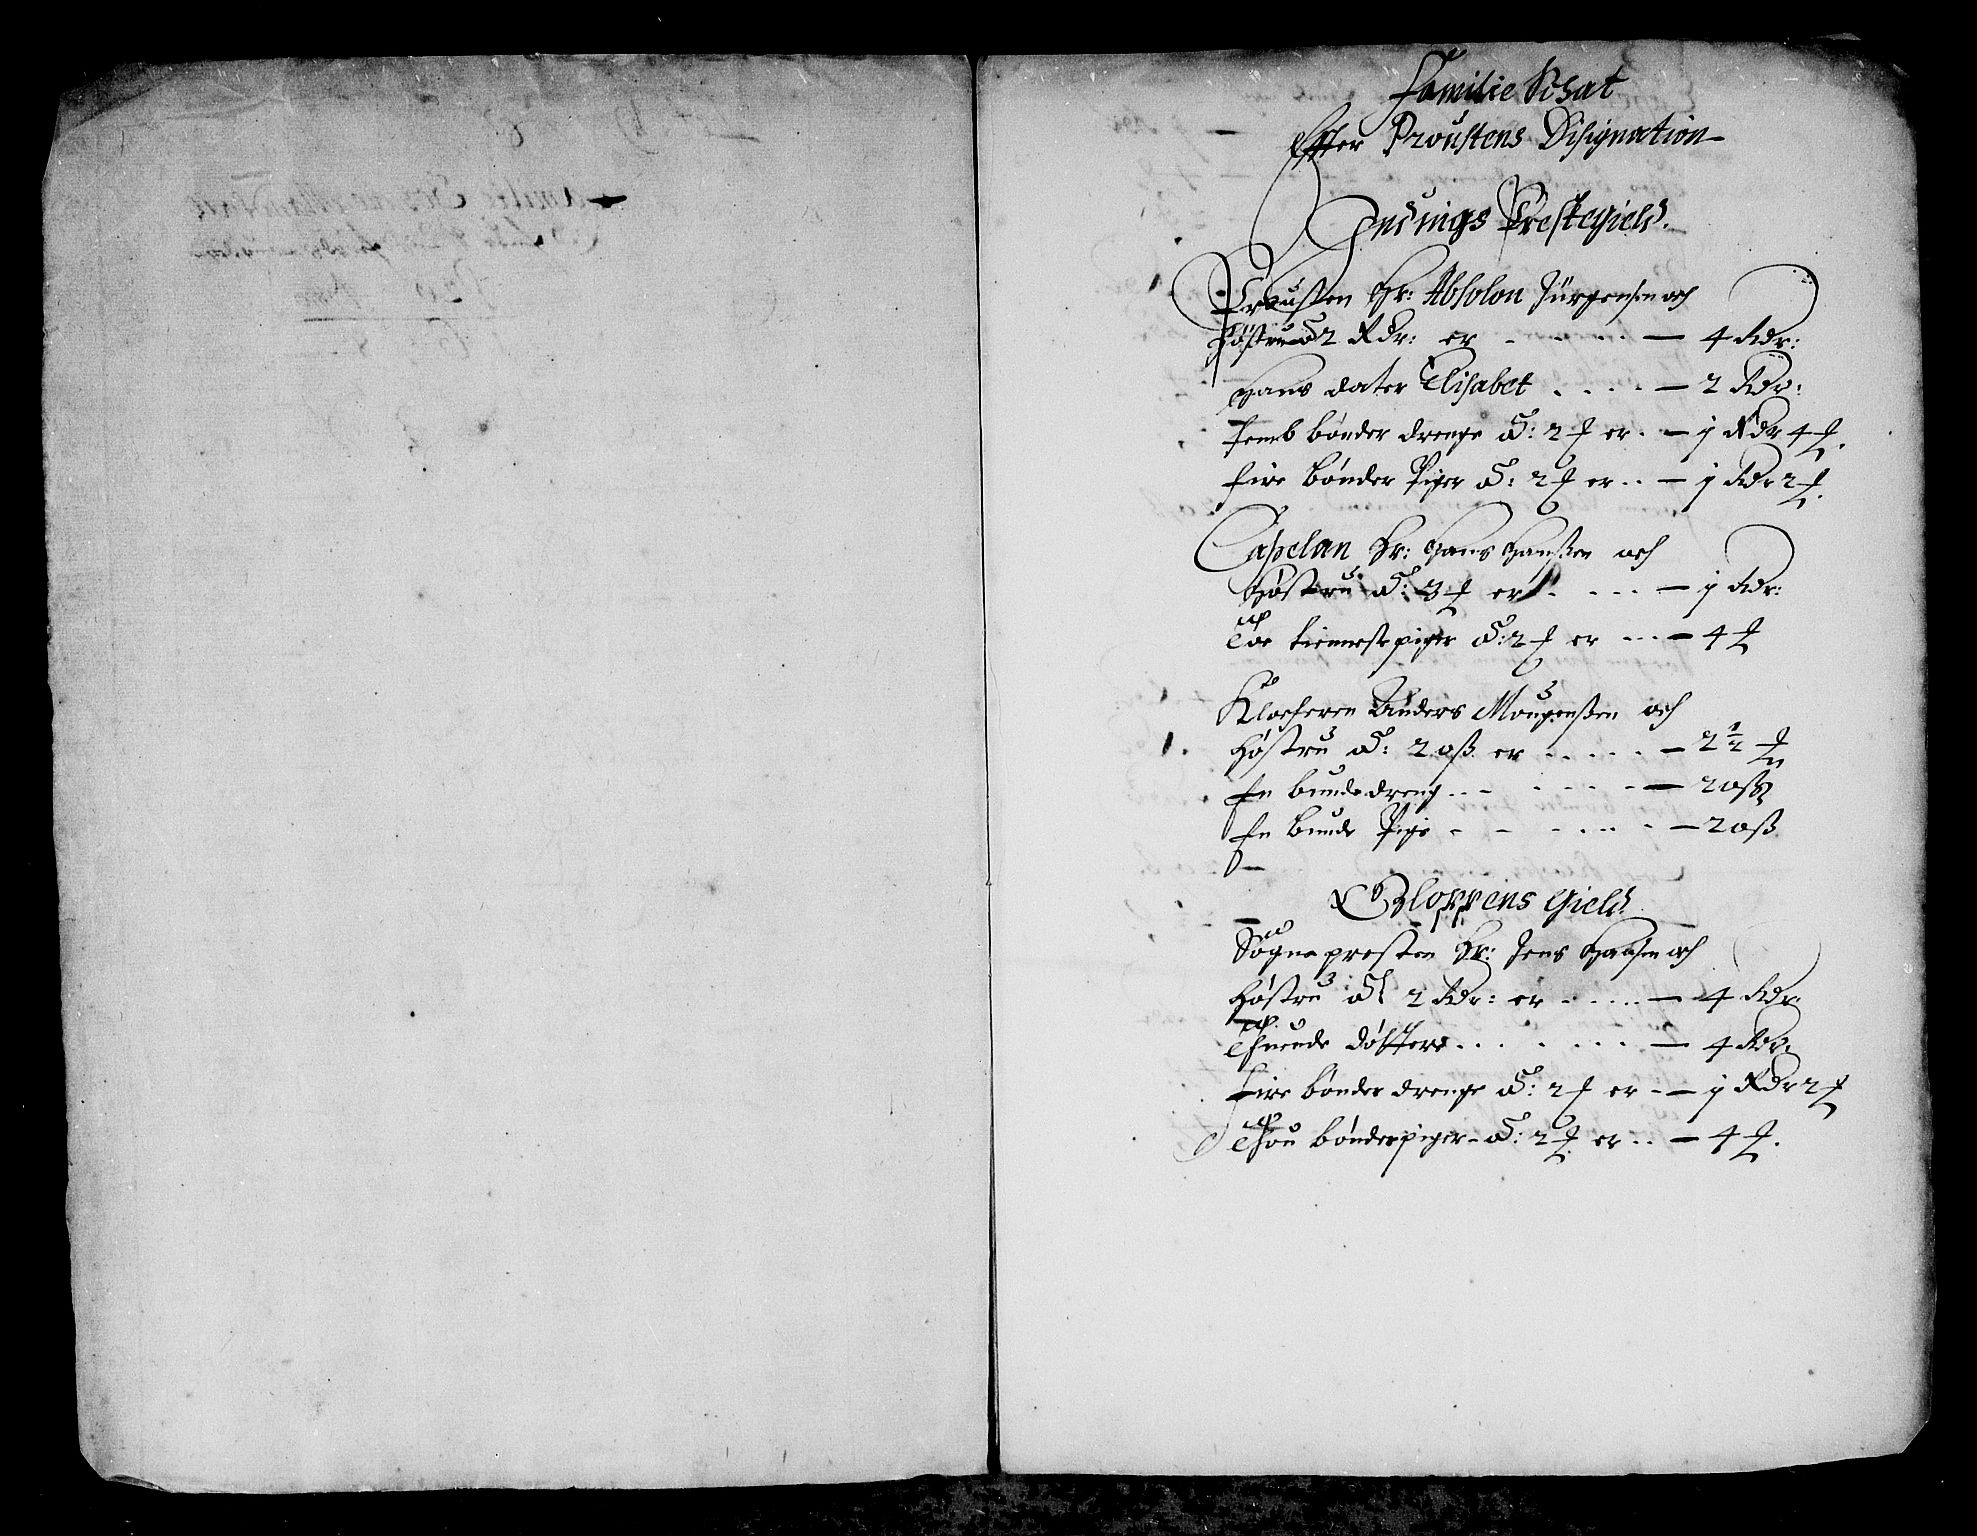 Familie Schat
Effter Proustens Disignation
Indvigs Prestegield.
Prousten Hr: Absolon Jürgensen och
Høstru â 2 Rdr: er - - - - - 4 Rdr:
Hans dater Elisabet . . . . - 2 Rdr:
femb bønder drenge â: 2 ₰ er. - j Rdr 4 ₰.
fire bønder Piger â: 2 ₰ er . . - j Rdr 2 ₰.
Capelan Hr: Hans Hanßen och
Høstru â: 3 ₰ er . . . . - j Rdr:
Toe tienneste piger â: 2 ₰ er - - - 4 ₰
Klocheren Anders Mougenßen och
Høstru â: 20 ß er . . . . . - 2 ½ ₰
En bunde dreng . . - - - - - 20 ß
En bunde Pige - - - - - - - 20 ß
Gloppens Gield
Sogne presten Hr: Jens Hansen och
Høstru â 2 Rdr: er - . . . . - 4 Rdr.
Thuende døttere . . . . . . . - 4 Rdr.
Fire bønder drenge â: 2 ₰ er - - j Rdr 2 ₰
Thou bønderpiger - â: 2 ₰ er . . - 4 ₰.